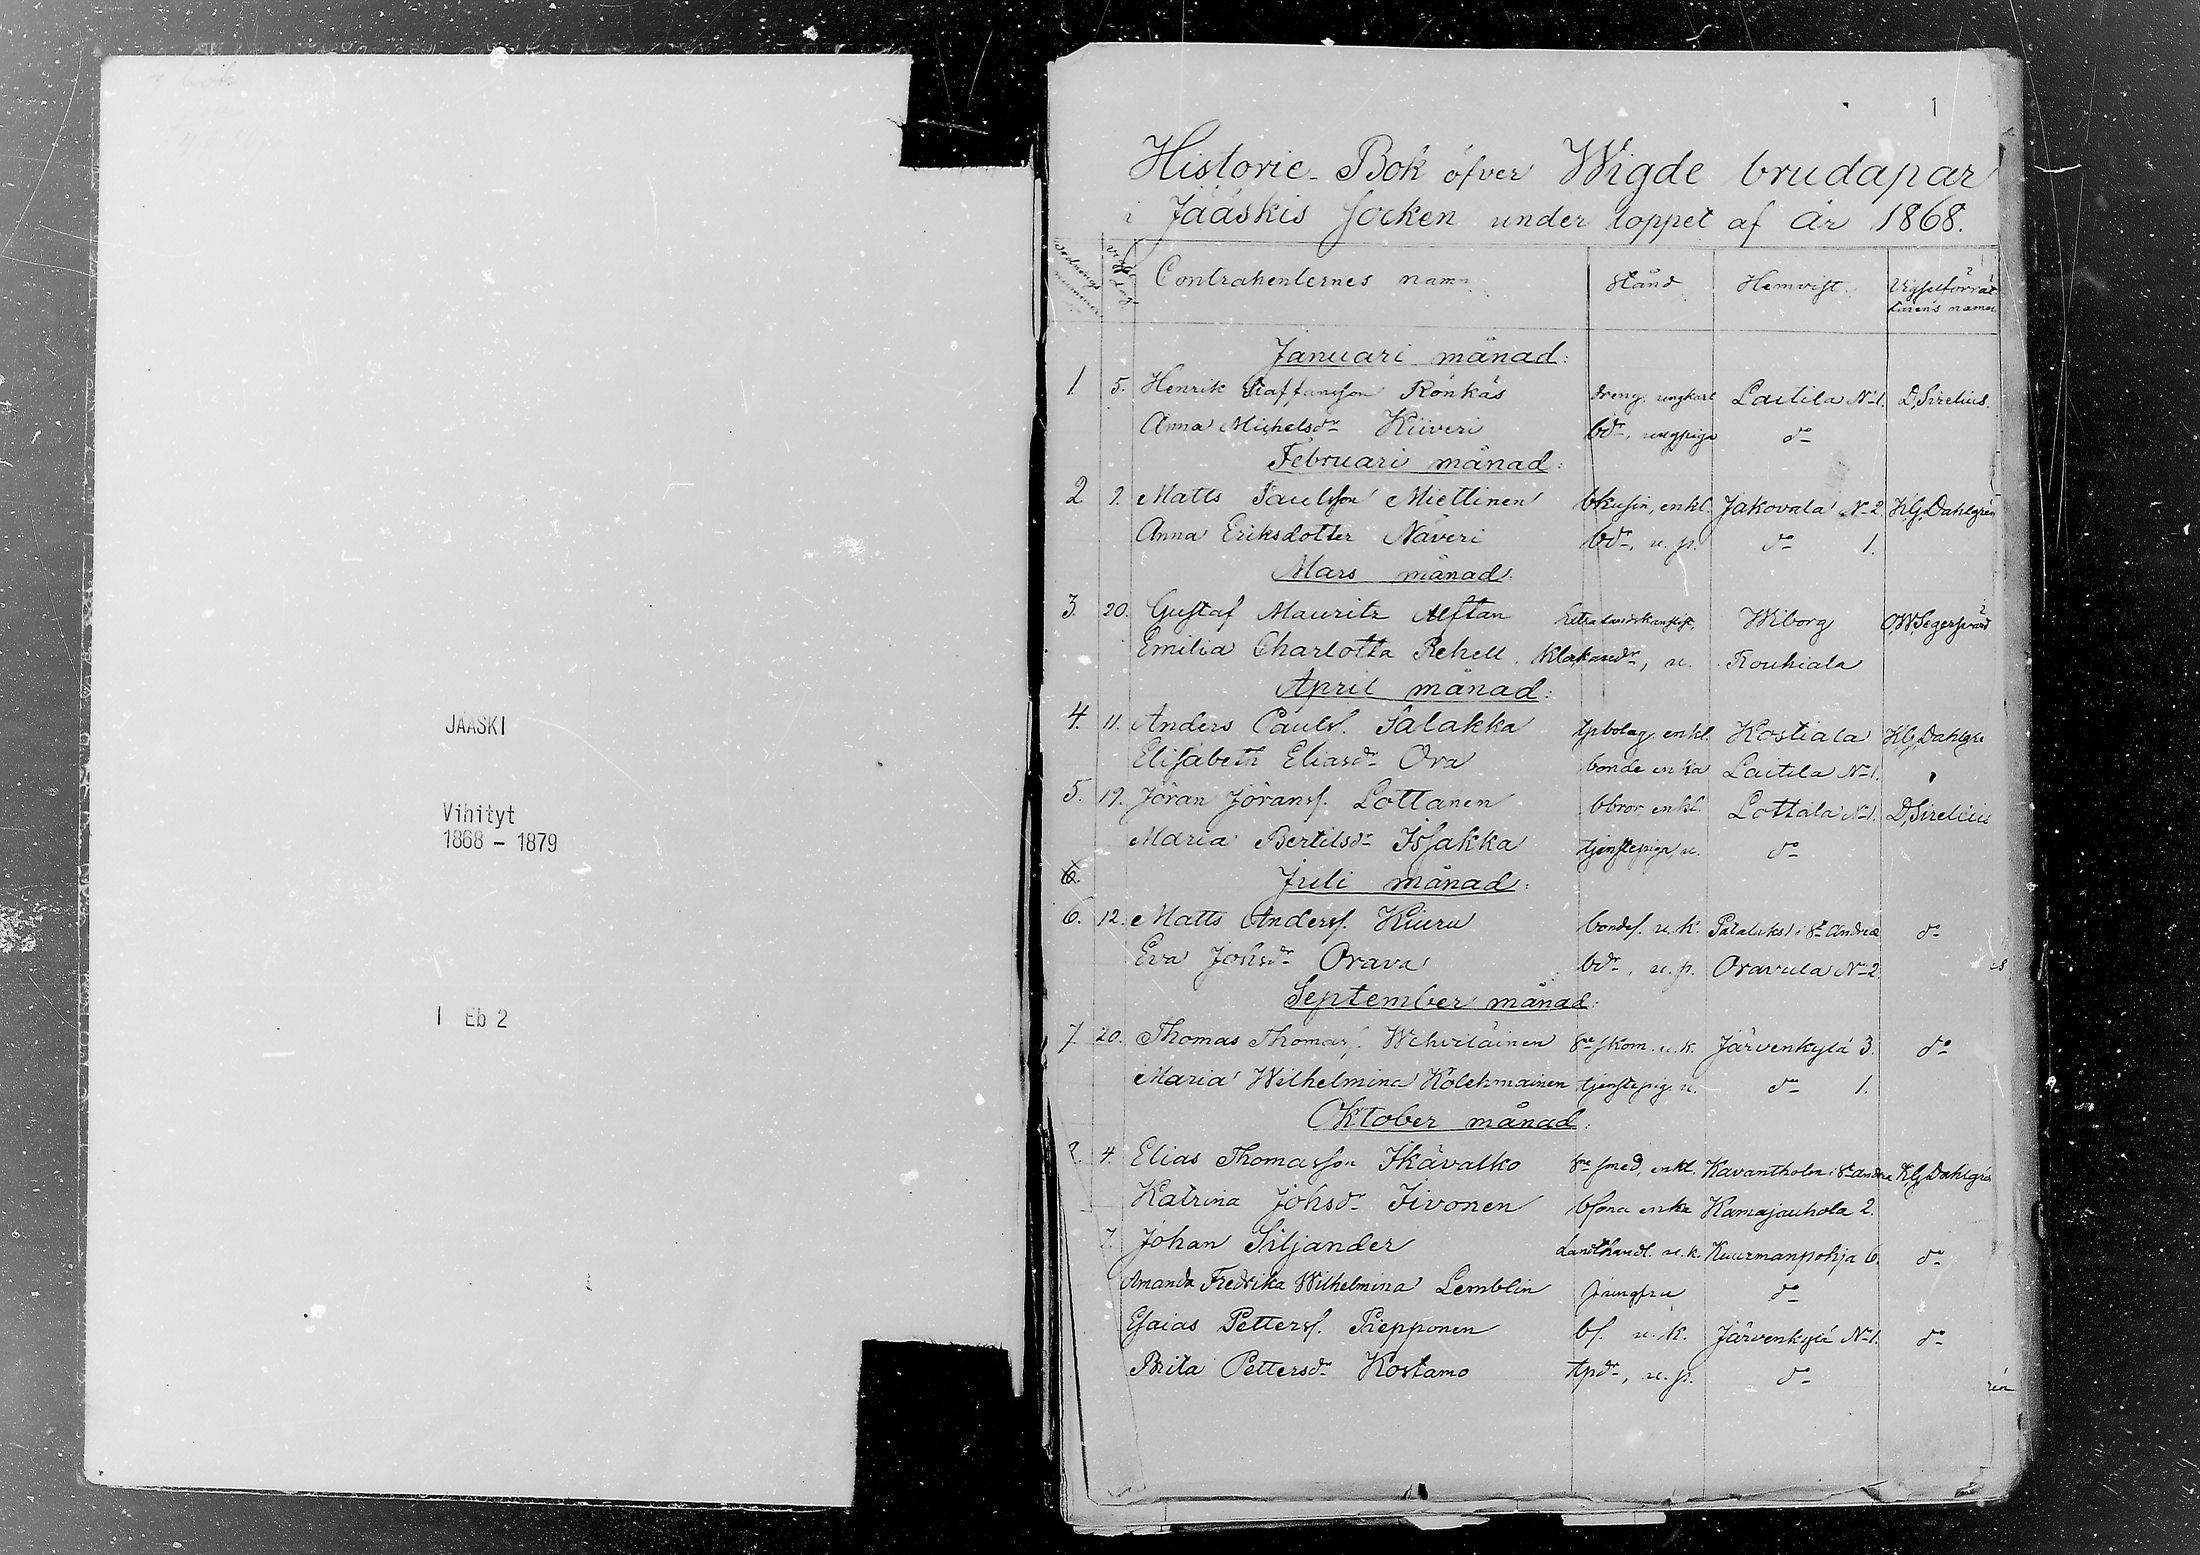 JÄÄSKI
Vihityt
1868 - 1879
I Eb 2
1
Historie-Bok öfver Wigde brudapar
i Jääskis Socken under loppet af år 1868.
Contrahenternes namn Stånd Hemvist Vigselförrät-
tarens namn
Januari månad:
1. 5. Henrik Staffansson Rönkäs dreng, ungkarl Laitila No 1. D, Sirelius.
Anna Michelsdr Kiiveri bdr, ungpiga do
Februari månad:
2 9. Matts Paulsson Miettinen bkusin, enkl. Jakovala No 2. K.G. Dahlgren
Anna Eriksdotter Näveri bdr, u. p. do 1.
Mars månad
3. 20. Gustaf Mauritz Alftan Extra landskanslist, Wiborg O,W,Segersvärd
Emilia Charlotta Rehell. Klokaredr, u. Rouhiala
April månad:
4. 11. Anders Paulss. Salakka tpbolag. enkl. Kostiala K.G. Dahlgre
Elisabeth Eliasdr Ora bonde enka Laitila No 1.
5. 19. Jöran Jöranss. Lottanen bbror, enkl. Lottala No 1. D, Sirelius
Maria Bertilsdr Issakka tjenstepiga, u. do
6. Juli månad:
6. 12. Matts Anderss. Kiuru bondes. u. k. i St Andreæ do
Eva Johsdr Orava bdr, u. p. Oravala No 2
September månad:
7 20. Thomas Thomass. Wihviläinen skom. u. k. Järvenkylä 3. do
Maria Wilhelmina Kolehmainen tjenstepig. u. do 1.
Oktober månad:
4. Elias Thomasson Ikävalko smed, enkl. Kavantholm i St Andreæ K.G. Dahlgren
Katrina Johsdr Iivonen bsona enka Kamajauhola 2.
7. Johan Siljander Landthandl. u. k. Kuurmanpohja 6. do
Amanda Fredrika Wilhelmina Lemblin jungfru do
Esaias Petterss. Piepponen bs. u. k. Järvenkylä No 1. do
Brita Pettersdr Kostamo tpdr, u. p. do